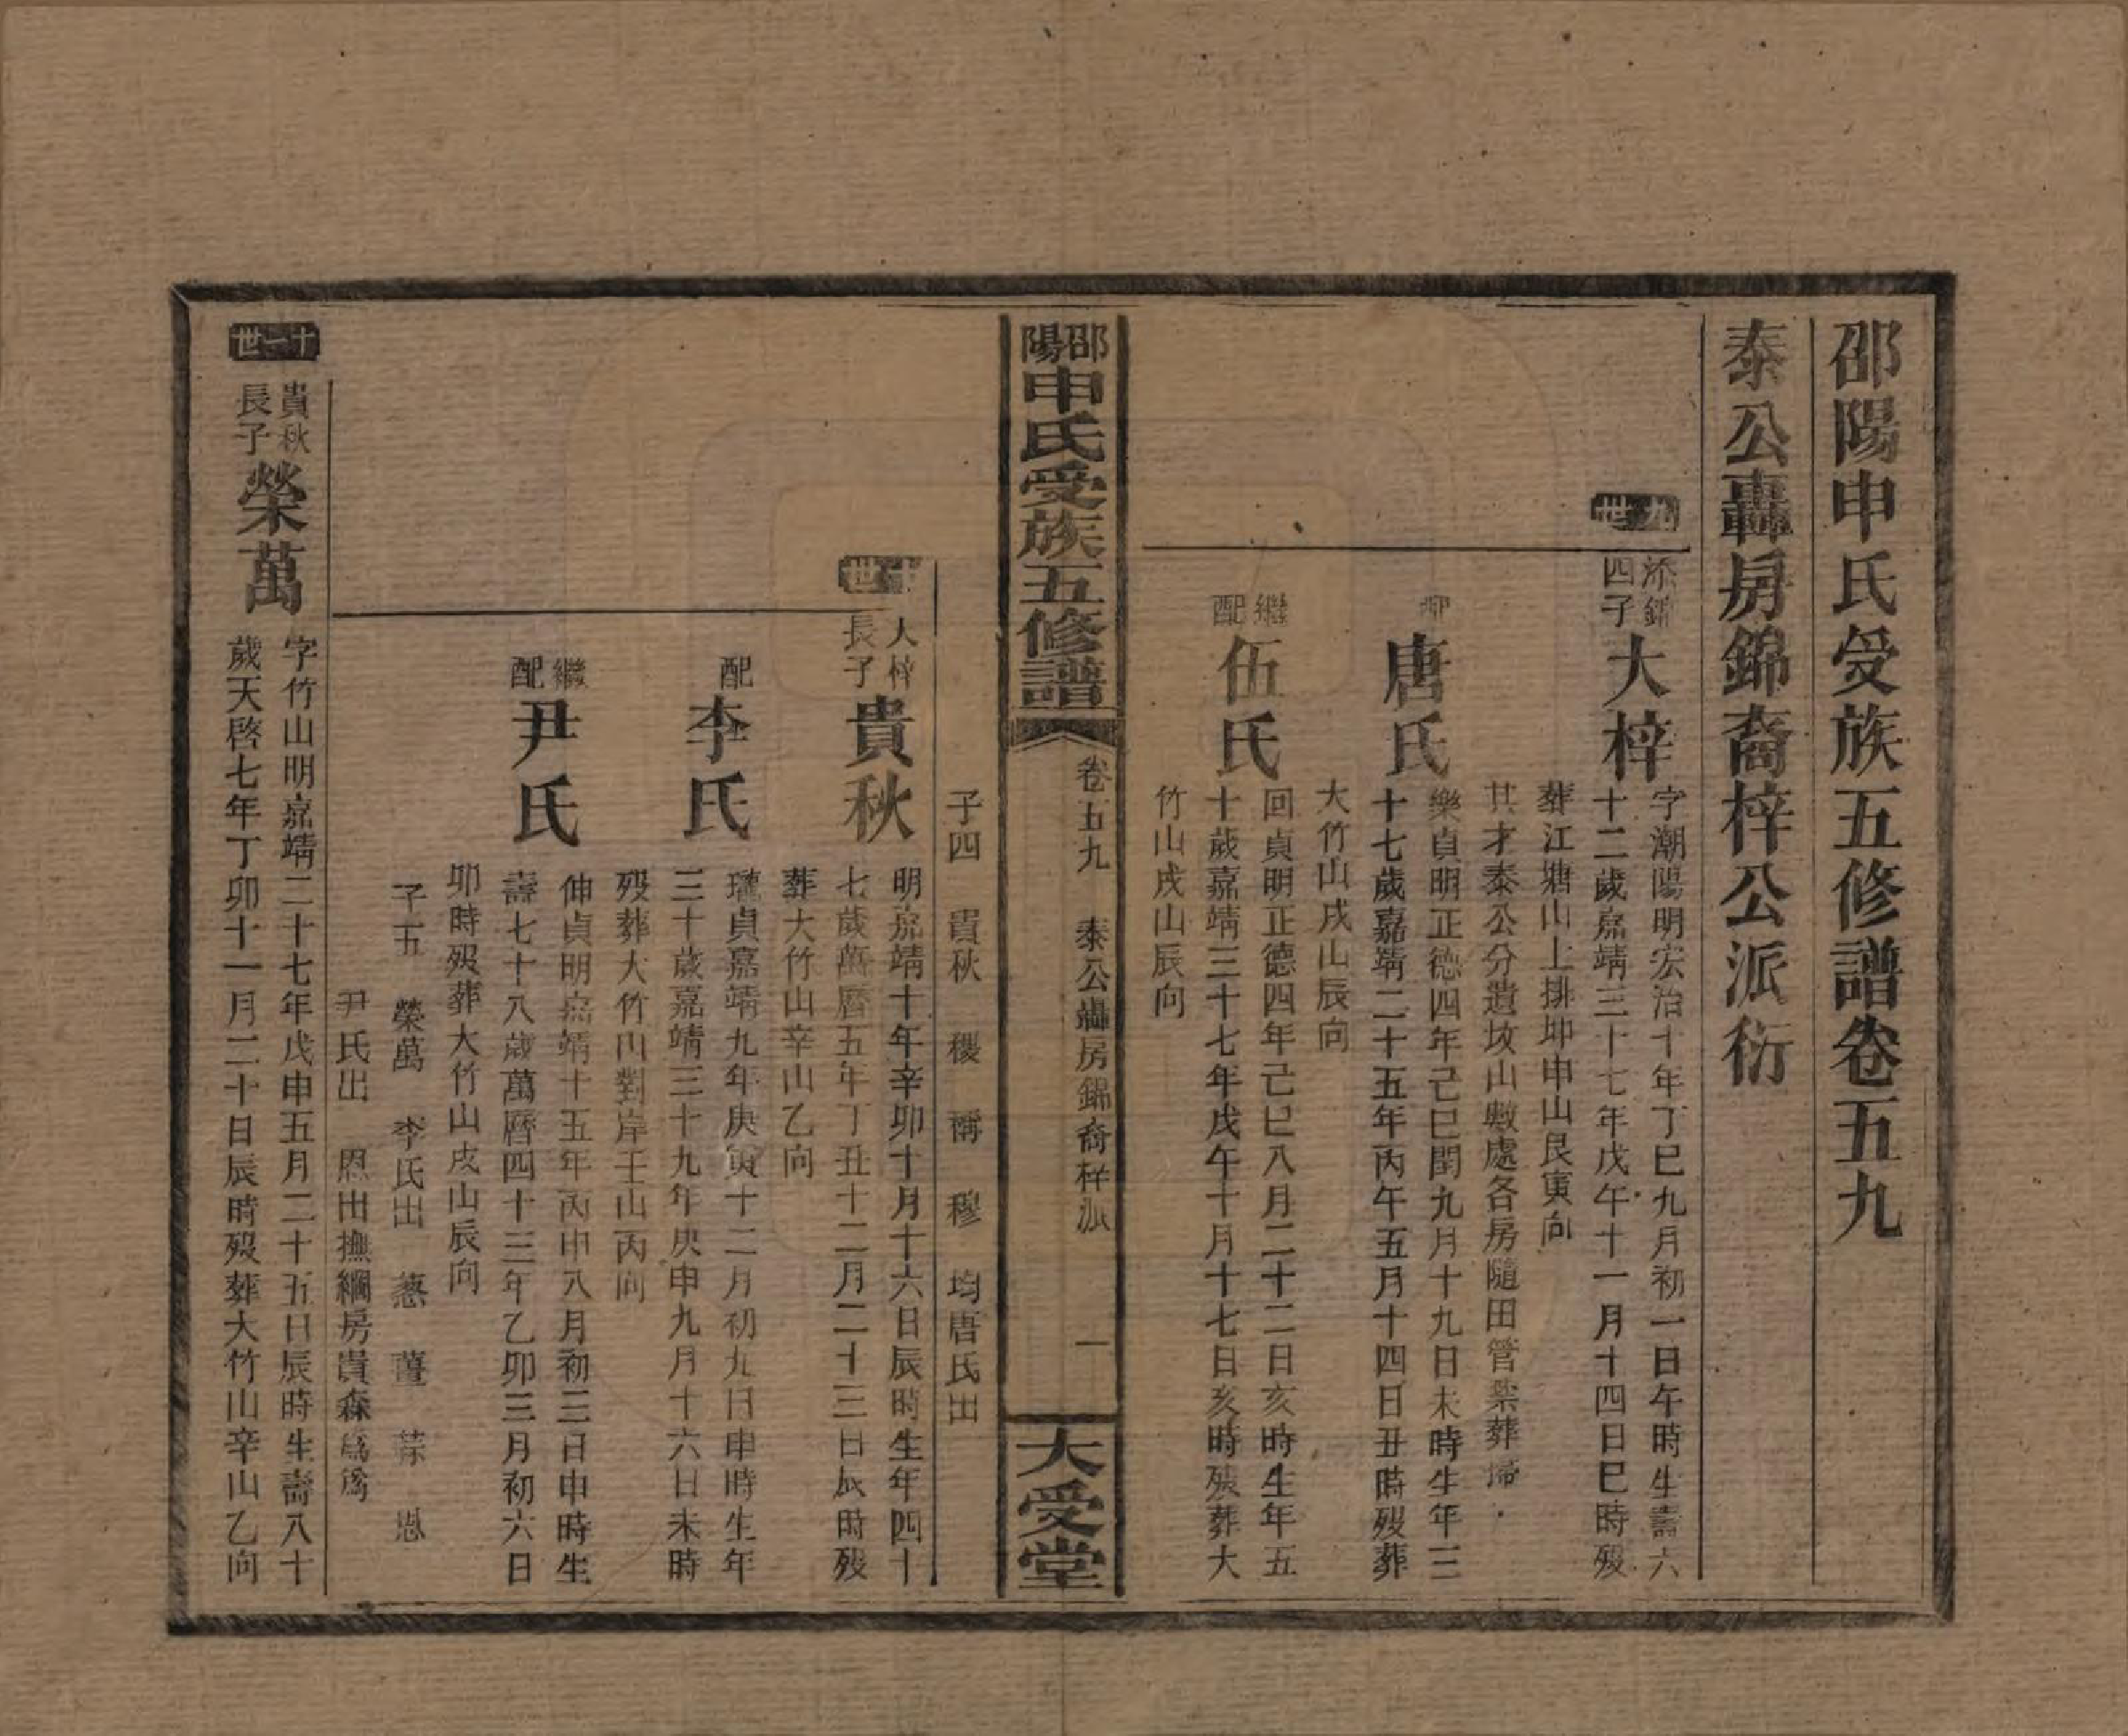 邵陽申氏受族五修譜卷五九
泰公轟房錦裔梓公派衍
九世
添錦四子
大梓
字潮陽明宏治十年丁巳九月初一日午時生壽六
十二歲嘉靖三十七年戊午十一月十四日巳時歿
葬江塘山上排坤申山艮寅向
廿才泰公分遺坟山數處各房隨田管業葬掃
配
唐氏
樂貞明正德四年己巳閏九月十九日未時生年三
十七歲嘉靖二十五年丙午五月十四日丑時歿葬
大竹山戌山辰向
繼配
伍氏
回貞明正德四年己巳八月二十二日亥時生年五
十歲嘉靖三十七年戊午十月十七日亥時歿葬大
竹山戌山辰向
邵陽申氏受族五修譜
卷五九 泰公轟房錦裔梓派 一
大受堂
子四 貴秋 稷 稱 穆 均唐氏出
十世
大梓長子
貴秋
明嘉靖十年辛卯十月十六日辰時生年四十
七歲萬曆五年丁丑十二月二十三日辰時歿
葬大竹山辛山乙向
配
李氏
瓏貞嘉靖九年庚寅十二月初九日申時生年
三十歲嘉靖三十九年庚申九月十六日未時
歿葬大竹山對岸壬山丙向
繼配
尹氏
伸貞明嘉靖十五年丙申八月初三日申時生
壽七十八歲萬曆四十三年乙卯三月初六日
卯時歿葬大竹山戌山辰向
子五 榮萬 李氏出 葱 薑 蒜 恩
尹氏出 恩出撫綱房貴森爲爲
十一世
貴秋長子
榮萬
字竹山明嘉靖二十七年戊申五月二十五日辰時生壽八十
歲天啓七年丁卯十一月二十日辰時歿葬大竹山辛山乙向